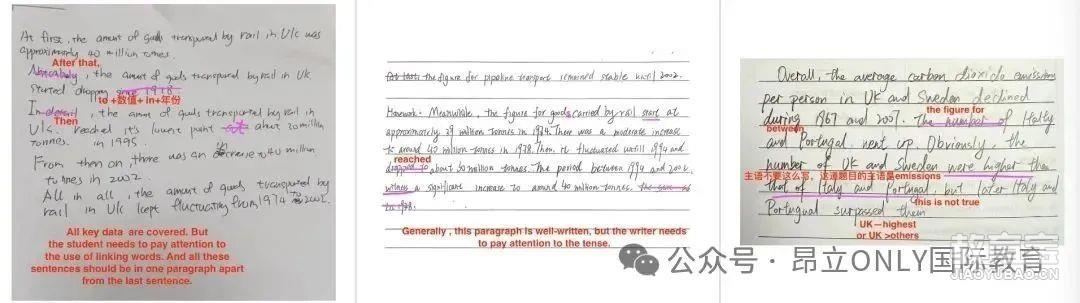 At first, the amount of goods transported by rail in UK was
approximately 40 million tonnes.
After that,
Notably, the amount of goods transported by rail in UK
started dropping since 1978.
to +数值+ in+年份
In detail, the amount of goods transported by rail in
Then
UK. reach it's lowest point at about 20 million
tonnes. in 1995.
From then on, there was an increase to 40 million
tonnes in 2002.
All in all, the amount of goods transported by
rail in UK kept fluctuating from 1974 to 2002.
All key data are covered. But
the student needs to pay attention to
the use of linking words. And all these
sentences should be in one paragraph apart
from the last sentence.
the figure for pipeline transport remained stable until 2002.
Homework: Meanwhile, the figure for goods carried by rail start at
approximately 39 million tonnes in 1974. There was a moderate increase
to around 40 million tonnes in 1978. Then, it fluctuated until 1994 and
reached
dropped to about 30 million tonnes. The period between 1994 and 2002
witness a significant increase to around 40 million tonnes. the same as
in 1978.
Generally , this paragraph is well-written, but the writer needs
to pay attention to the tense.
Overall, the average carbon dioxide emissions
per person in UK and Sweden declined
the figure for
during 1967 and 2007. The number of Italy
between
and Portugal went up. Obviously, the
number of UK and Sweden were higher than
主语不要这么写，这道题目的主语是emissions
that of Italy and Portugal, but later Italy and
this is not true
Portugual surpassed them
UK—highest
or UK >others
公众号 · 昂立ONLY国际教育
JIAOYUBAO.CN